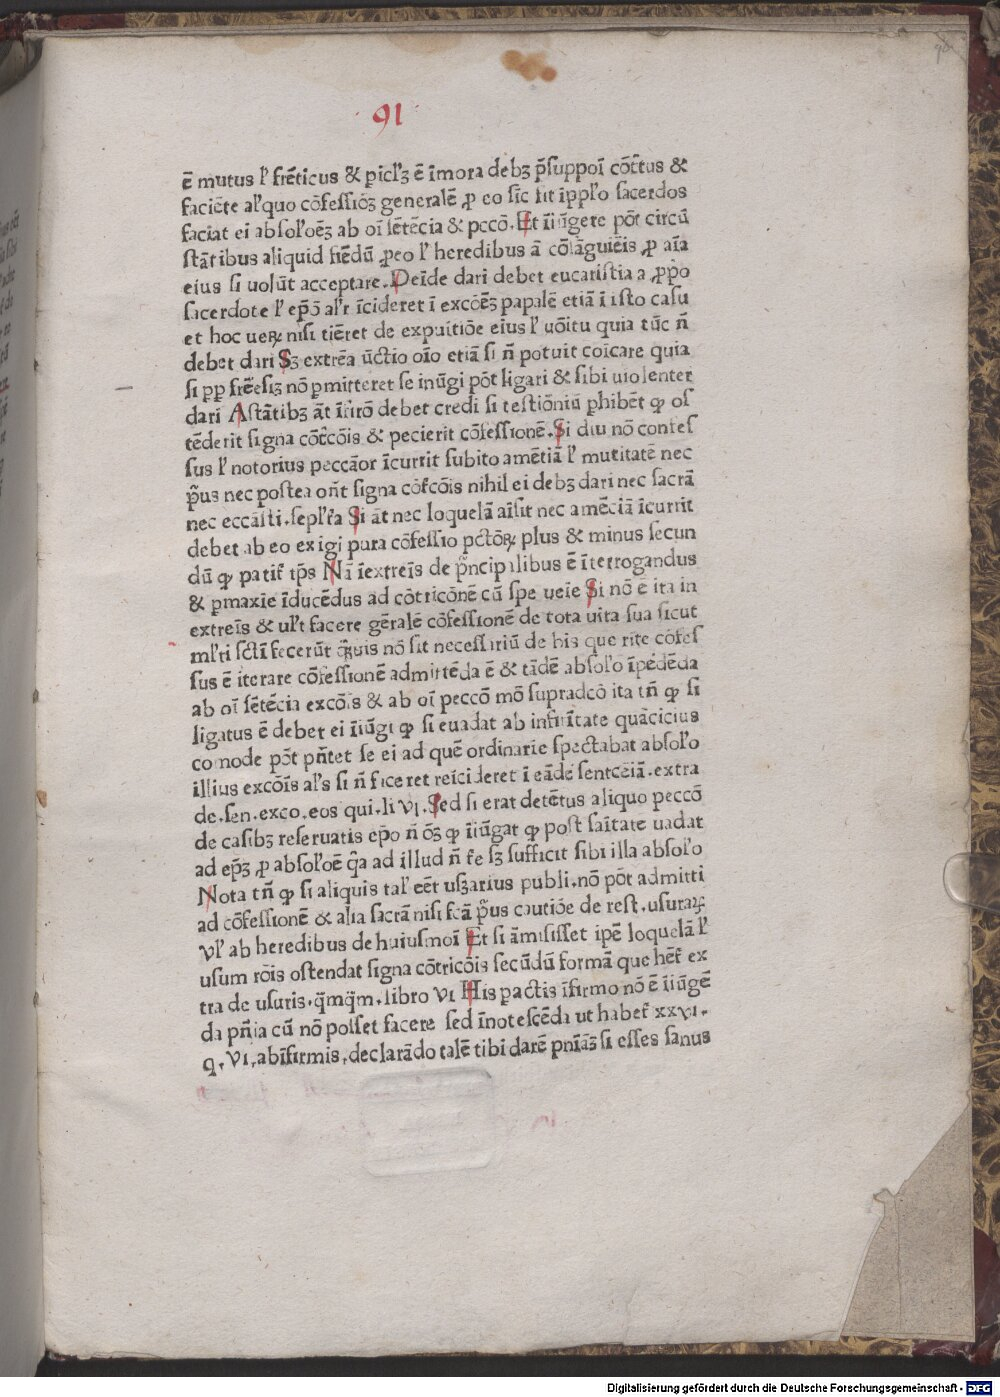 91
ē mutus ł frēticus & piclʼꝫ ē ī mora debꝫ p̄suppoī cōt̄tus &
faciēte alʼquo cōfessiōꝫ generalē ꝓ eo sīc fit ī pplʼo sacerdos
faciat ei absolʼoēꝫ ab oī sētēcia & pccō. Et īiūgere pōt circū
stātibus aliquid fiēdū ꝓ eo ł heredibus ā cōsāguiēis ꝓ aīa
eius si uolūt acceptare. Deīde dari debet eucaristia a ꝓpō
sacerdote ł ep̄ō alʼr īcideret ī excōēꝫ papalē etiā ī isto casu
et hoc ueꝝ nisi tiēret de expuitiōe eius ł uōitu quia tūc n̄
debet dari Sꝫ extrēa ūctio oīo etiā si n̄ potuit coīcare quia
si pp frēesiꝫ nō pmitteret se inūgi pōt ligari & sibi uiolenter
dari Astātibꝫ āt īfirō debet credi si testiōniū phibēt ꝙ os
tēderit signa cōt̄cōis & pecierit cōfessionē. Si diu nō confes
sus ł notorius peccāor īcurrit subito amētiā ł mutitatē nec
p̄us nec postea on̄t signa cōt̄cōis nihil ei debꝫ dari nec sacrā
nec eccāsti. seplʼt̄a Si āt nec loquelā aīsit nec amēciā īcurrit
debet ab eo exigi pura cōfessio pctōꝝ plus & minus secun
dū ꝙ patit̄ tp̄s Nā ī extreīs de p̄ncipalibus ē īterrogandus
& pmaxie īducēdus ad cōtricōnē cū spe ueīe Si nō ē ita in
extreīs & ulʼt facere gēralē cōfessionē de tota uita sua sicut
mlʼti sctī fecerūt q̄uis nō sit necessariū de his que rite cōfes
sus ē iterare cōfessionē admittēda ē & tādē absolʼo īpēdēda
ab oī sētēcia excōis & ab oī peccō mō supradcō ita tn̄ ꝙ si
ligatus ē debet ei īiūgi ꝙ si euadat ab infirītate quācicius
comode pōt pn̄tet se ei ad quē ordinarie spectabat absolʼo
illius excōīs alʼs si n̄ faceret reīcideret ī eādē sentēciā. extra
de. sen. exco. eos qui. li VI. Sed si erat detētus aliquo peccō
de casibꝫ reseruatis ep̄o n̄ ōꝫ ꝙ īiūgat ꝙ post saītate uadat
ad ep̄ꝫ ꝓ absolʼoē q̄a ad illud n̄ t̄e sꝫ sufficit sibi illa absolʼo
Nota tn̄ ꝙ si aliquis talʼ eēt usꝫarius publi. nō pōt admitti
ad cōfessionē & alia sacrā nisi fcā p̄us cautiōe de rest. usuraꝝ
Vł ab heredibus de huiusmoī Et si āmisisset ipē loquelā ł
usum rōis ostendat signa cōtricōis secūdū formā que hēt̄ ex
tra de usuris. q̄mq̄m. libro VI His pactis īfirmo nō ē īiūgē
da pn̄ia cū nō posset facere sed īnotescēda ut habet̄ XXVI.
q. VI. ab īfirmis. declarādo talē tibi darē pnīāꝫ si esses sanus
Digitalisierung gefördert durch die Deutsche Forschungsgemeinschaft - DFG